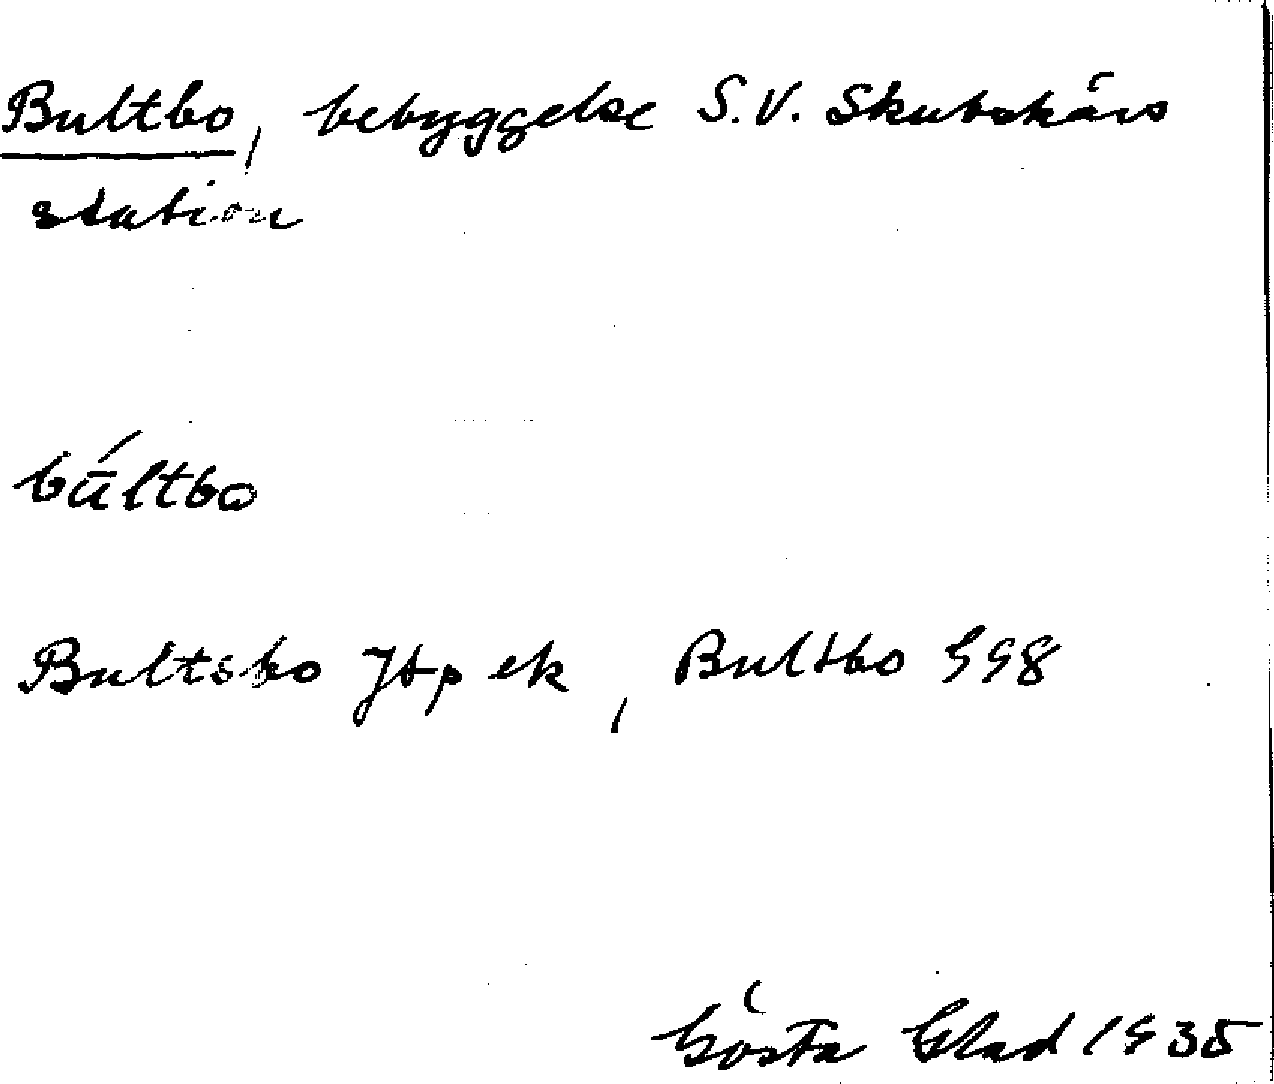 Bultbo, bebyggelse S.V. Skutskärs
station
búltbo
Bultsbo Jtp ek, Bultbo 998
Gösta Glad 1935